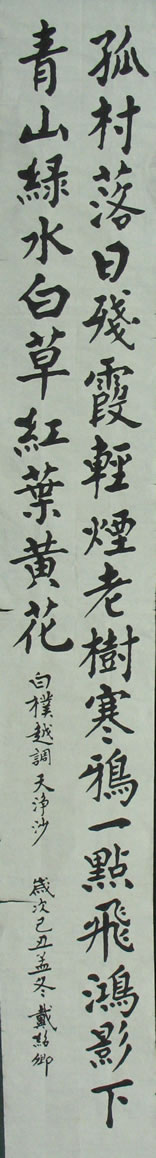 孤村落日殘霞輕煙老樹寒鴉一點飛鴻影下
青山綠水白草紅葉黃花
白樸越調天淨沙 歲次己丑孟冬 戴 卿